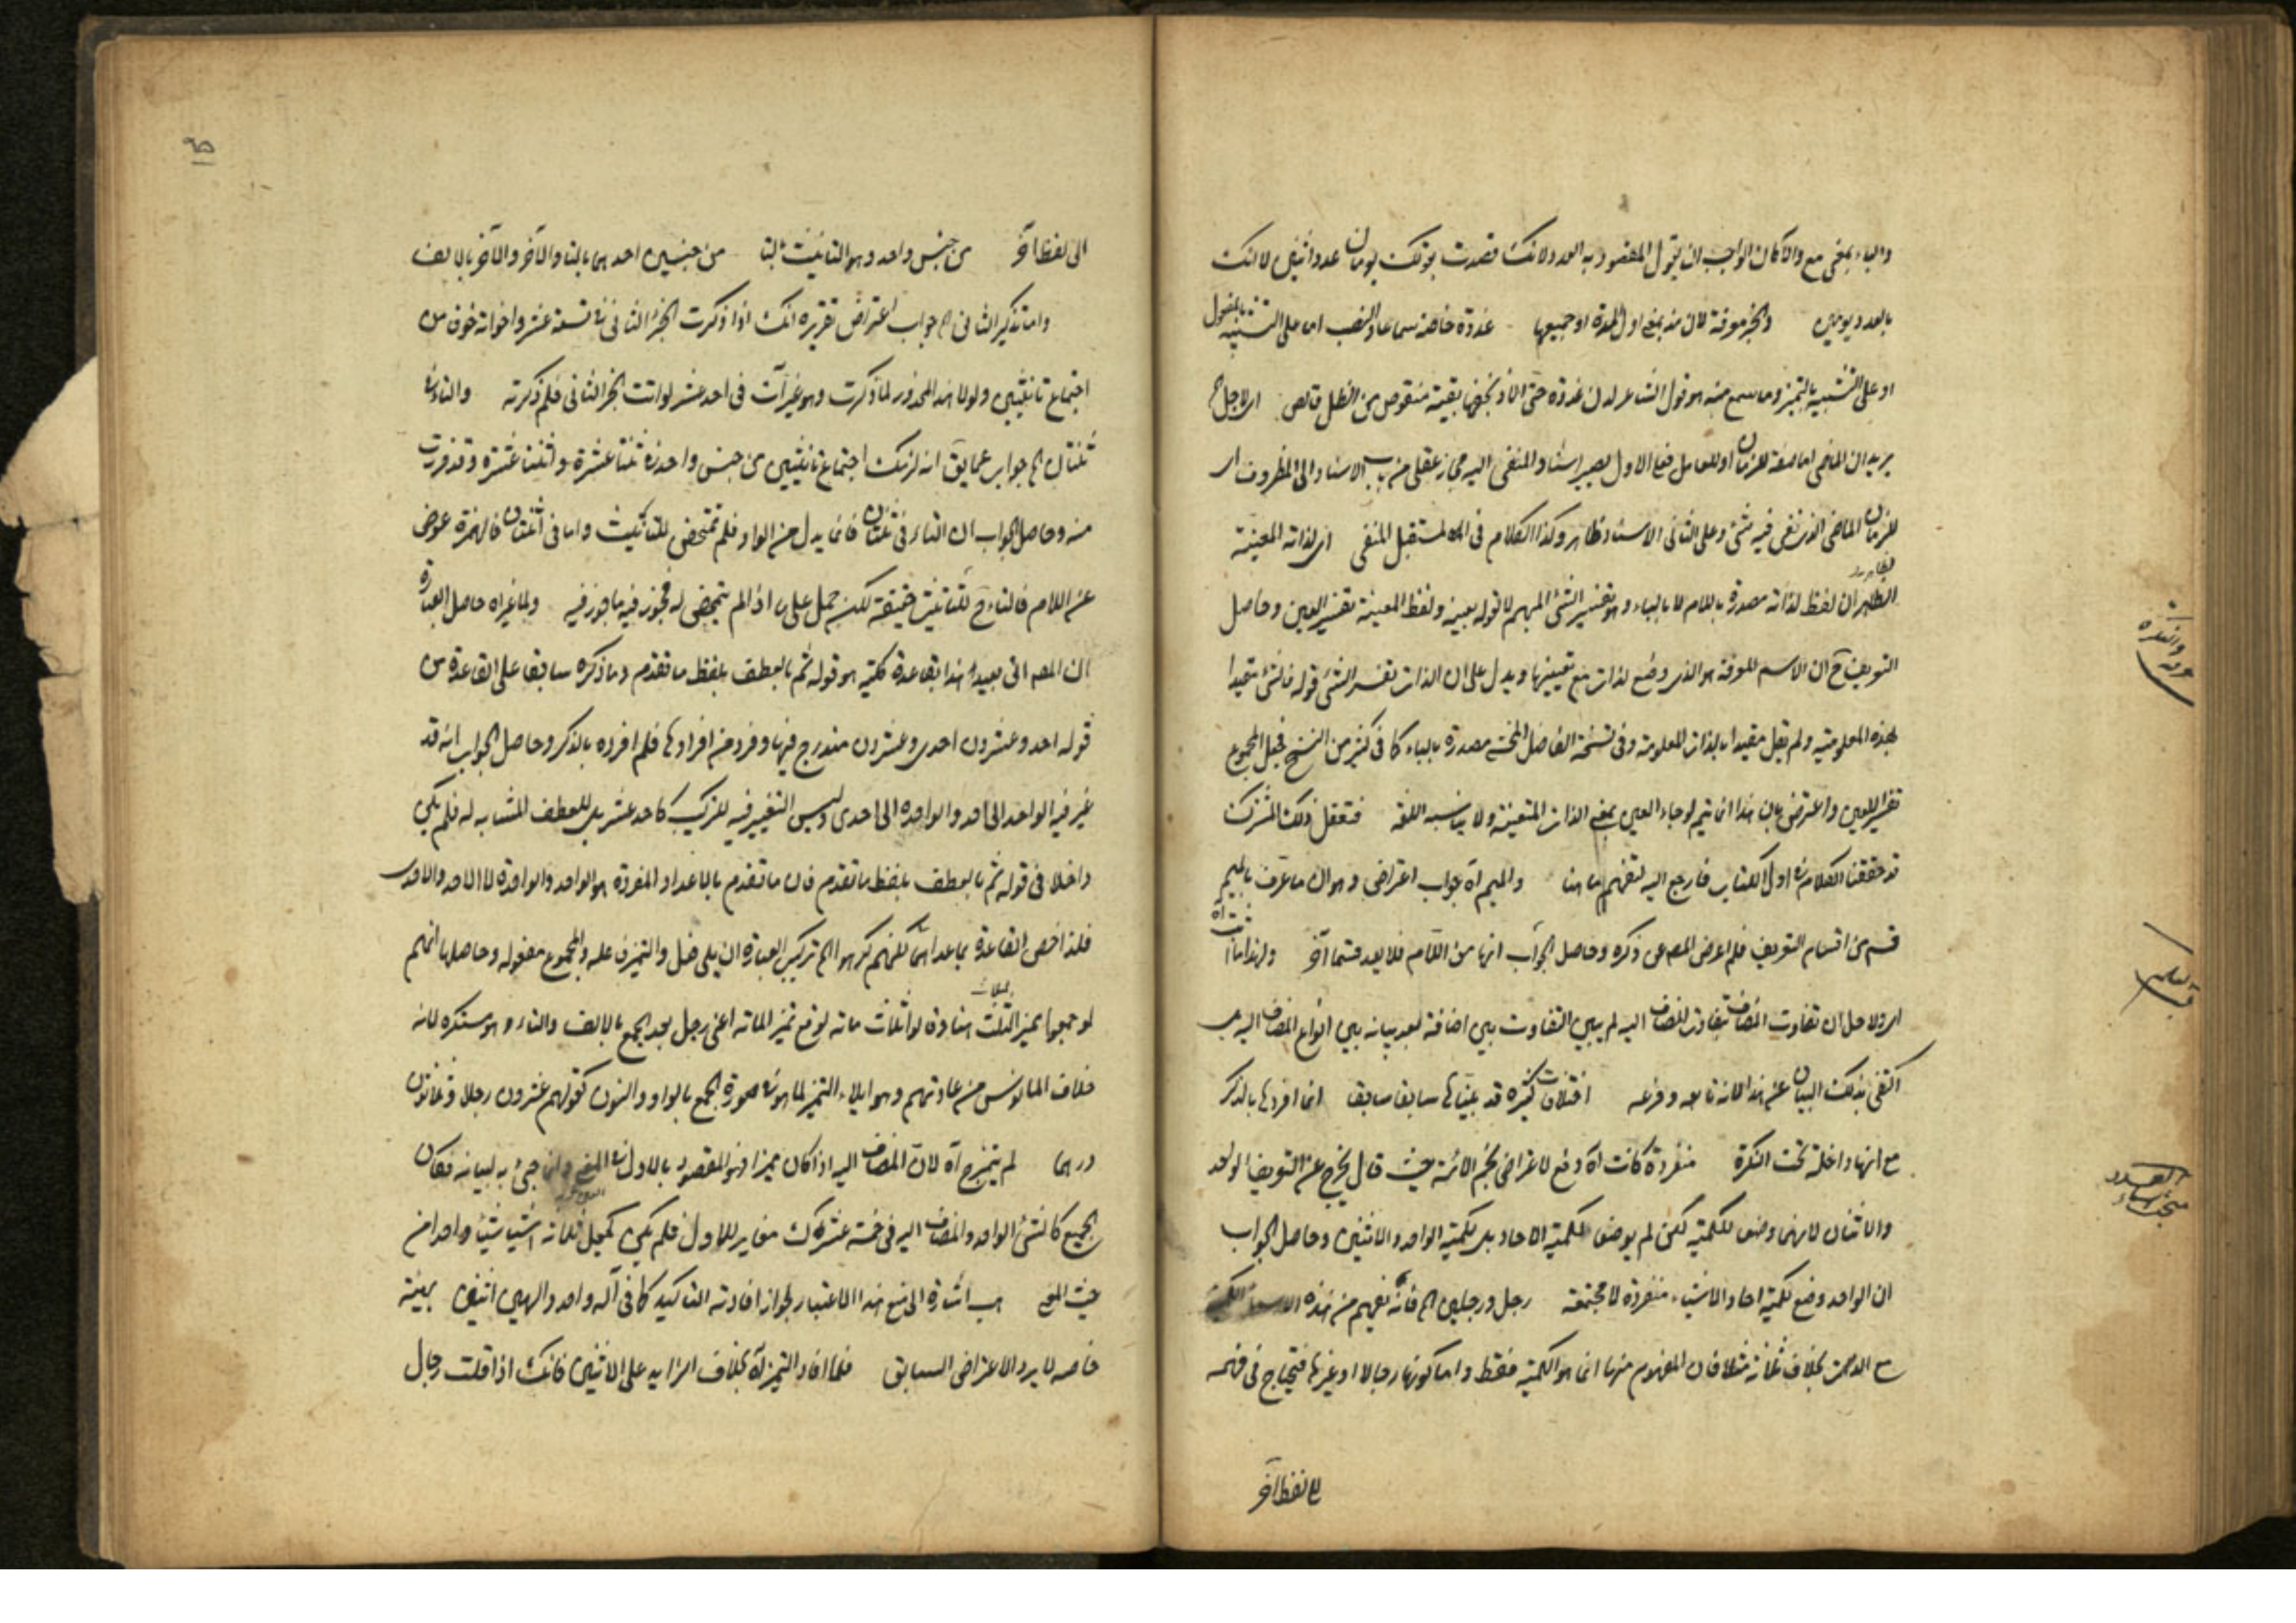 والباء بمعنى مع والا كان الواجب ان يقول المقصود به العدد لانك قصدت بقولك يومان عدد اثنين لا انك
بالعدد يومين والخبر معرفة لان منذ بمعنى اول المدة او جميعها غدوة خاصة سماعا والنصب اما على التشبيه بالمفعول
او على التشبيه بالتميز وما سمع منه هو قول الشاعر لدن غدوة حتى الاذ بخفها بقية منقوص من الظل قالص اى لاجل
يريد ان الماضى اما صفة للزمان او للعامل فعلى الاول يصير اسناد المنفى اليه مجاز عقلى من باب الاسناد الى المظروف اى
للزمان الماضى الذى نفى فيه شئ وعلى الثانى الاسناد ظاهر وكذا الكلام فى المستقبل المنفى اى لذاته المعينة
الظاهر ان لفظ لذاته مصدرة باللام لا بالباء وهو تفسير الشئ المبهم لا قوله بعينه ولفظ المعينة تفسير العين وحاصل
التعريف ح ان الاسم المعرفة هو الذى وضع لذات مع تعيينها ويدل على ان الذات تفسير الشئ قوله فالشئ مقيدا
بهذه المعلومية ولم يقل مقيدا بالذات المعلومة وفى نسخة الفاضل المحشى مصدرة بالباء كما فى كثير من النسخ فجعل المجموع
تفسير العين واعترض بان هذا انما يتم لو جاء العين بمعنى الذات المتعينة ولا يناسبه اللغة فتعقل ذلك المشترك
قد حققنا الكلام فى اول الكتاب فارجع اليه لتفهم ما هنا والميم آه جواب اعتراض وهو ان ما عرف بالميم
قسم من اقسام التعريف فلم اعرض المصـ عن ذكره وحاصل الجواب انها من اللام فلا يعد قسما آخر ولهذا
اى ولاجل ان تفاوت المضاف بتفاوت المضاف اليه لم يبين التفاوت بين اضافة بعد بيانه بين انواع المضاف اليه
اكتفى بذلك البيان عن هذا لانه تابعه وفرعه اختلافات كثيرة قد بيناها سابقا سابقا انما افردها بالذكر
مع انها داخلة تحت النكرة منفردة كانت آه دفع لاعتراض نجم الائمة حيث قال يخرج عن التعريف الواحد
والاثنان لانهما وضعا للكمية لكن لم يوضعا لكمية الاحاد بل لكمية الواحد والاثنين وحاصل الجواب
ان الواحد وضع لكمية احاد الاشياء منفردة لا مجتمعة رجل ورجلين الخ فانه يفهم من هذه
بخلاف ثلاثة مثلا فان المفهوم منها انما هو الكمية فقط واما كونها رجالا او غيرها فيحتاج فى فهمه
الى لفظ آخر
٩٥
الى لفظ آخر من جنس واحد وهو التانيث بالتا من جنسين احدهما بالتا والآخر والآخر بالالف
واما تذكير الثانى الخ جواب اعتراض تقريره انك اذا ذكرت الجزء الثانى فى تسعة عشر واخواته خوفا من
اجتماع تانيثين ولولا هذا المحذور لما ذكرت وهو غير آت فى احد عشر لو انثت الجزء الثانى فلم ذكرته والتاء فى
ثنتان الخ جواب عما يق انه لزمك اجتماع تانيثين من جنس واحد فى ثنتا عشرة واثنتا عشرة وقد فررت
منه وحاصل الجواب ان التاء فى ثنتان فانما بدل من الواو فلم تتمحض للتانيث واما فى اثنتان فالهمزة عوض
عن اللام فالتاء ح للتانيث حقيقة لكن حمل عليها اذا لم يتمحض له فجوز فيه ما جوز فيه ولما غيراه حاصل العبارة
ان المصـ اتى بعد هذا بقاعدة كلية هو قوله ثم بالعطف بلفظ ما تقدم وما ذكره سابقا على القاعدة من
قوله احد وعشرون احدى وعشرون مندرج فيها وفرد من افرادها فلم افرده بالذكر وحاصل الجواب انه قد
غير فيه الواحد الى احد والواحدة الى احدى وليس التغيير فيه للتركيب كاحد عشر بل للعطف المشابه له فلم يكن
داخلا فى قوله ثم بالعطف بلفظ ما تقدم فان ما تقدم بالاعداد المفردة هو الواحد والواحدة لا الاحد والاحدى
فلذا خص القاعدة بما عداهما كلهم كرهوا الخ تركيب العبارة ان يلى فعل والتميز فاعله والمجموع مفعوله وحاصلها انهم
لو جمعوا مميز الثلث هنا وقالوا ثلاث مات لوقع تميز المائة اعنى رجل بعد الجمع بالالف والتاء وهو مستكره لانه
خلاف المانوس من عادتهم وهو ايلاء التميز لما هو فى صورة الجمع بالواو والنون كقولهم عشرون رجلا وثمانون
درهما لم يتميز ح آه لان المضاف اليه اذا كان مميزا وهو المقصود بالاول فى المعنى وانما جئ به لبيانه فكان
الجميع كالشئ الواحد والمضاف اليه فى خمسة عشرك مغاير للاول فلم يكن كجعل ثلاثة اشيا شيئا واحدا من
حيث المعنى اشارة الى منع هذا الاعتبار لجواز افادته التاكيد كما فى آله واحد والهين اثنين بهيئته
خاصه لا يرد الاعتراض السابق فلما افاد التميز آه بخلاف الزايد على الاثنين فانك اذا قلت رجال